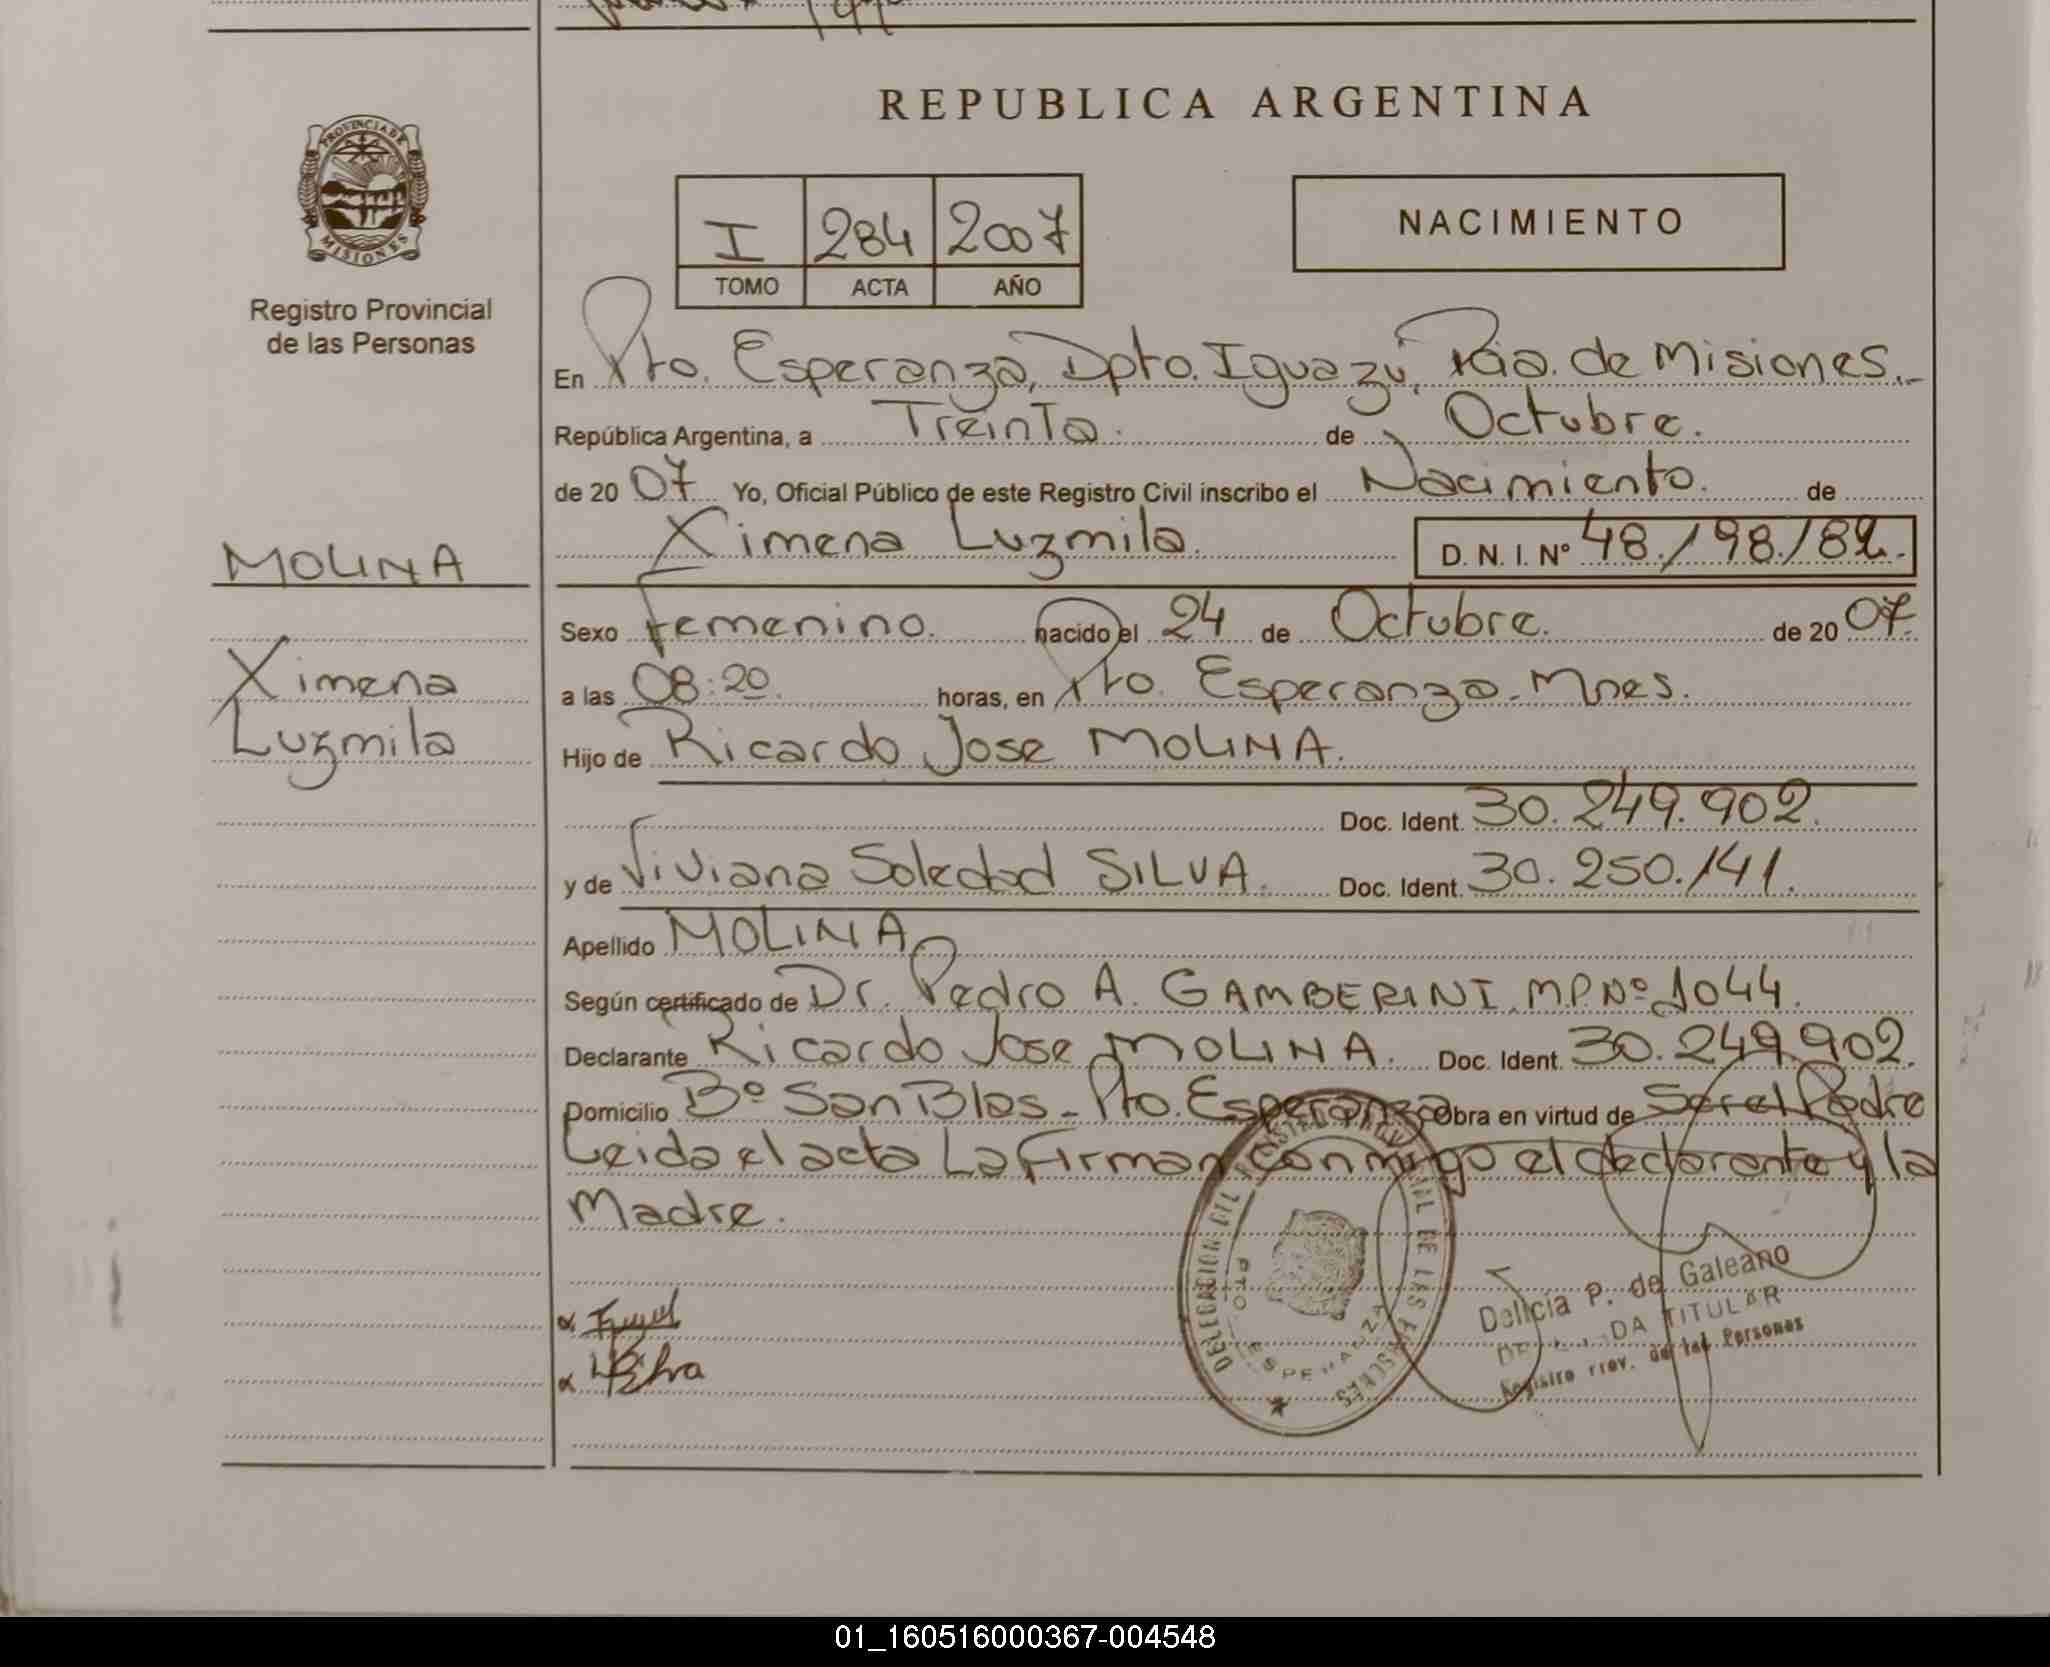 REPUBLICA ARGENTINA
PROVINCIA DE
MISIONES
Registro Provincial
de las Personas
I 284 2007
TOMO ACTA AÑO
NACIMIENTO
En Pto. Esperanza, Dpto. Iguazú, Pcia. de Misiones.-
República Argentina, a Treinta. de Octubre.
de 20 07 Yo, Oficial Público de este Registro Civil inscribo el Nacimiento. de
Ximena Luzmila. D. N. I. Nº 48./98./82.
MOLINA
Ximena
Luzmila
Sexo Femenino. nacido el 24 de Octubre. de 20 07.
a las 08:20. horas, en Pto. Esperanza. Mnes.
Hijo de Ricardo Jose MOLINA.
Doc. Ident. 30.249.902.
y de Viviana Soledad SILVA. Doc. Ident. 30.250.141.
Apellido MOLINA
Según certificado de Dr. Pedro A. GAMBERINI. M.P.Nº 1044.
Declarante Ricardo Jose MOLINA. Doc. Ident. 30.249.902.
Domicilio Bº San Blas - Pto. Esperanza Obra en virtud de Ser el Padre
Leida el acta La Firman conmigo el declarante y la
Madre.
DELEGACION DEL REGISTRO PROVINCIAL DE LAS PERSONAS
PTO. ESPERANZA
Delicia P. de Galeano
TITULAR
Registro Prov. de las Personas
01_160516000367-004548